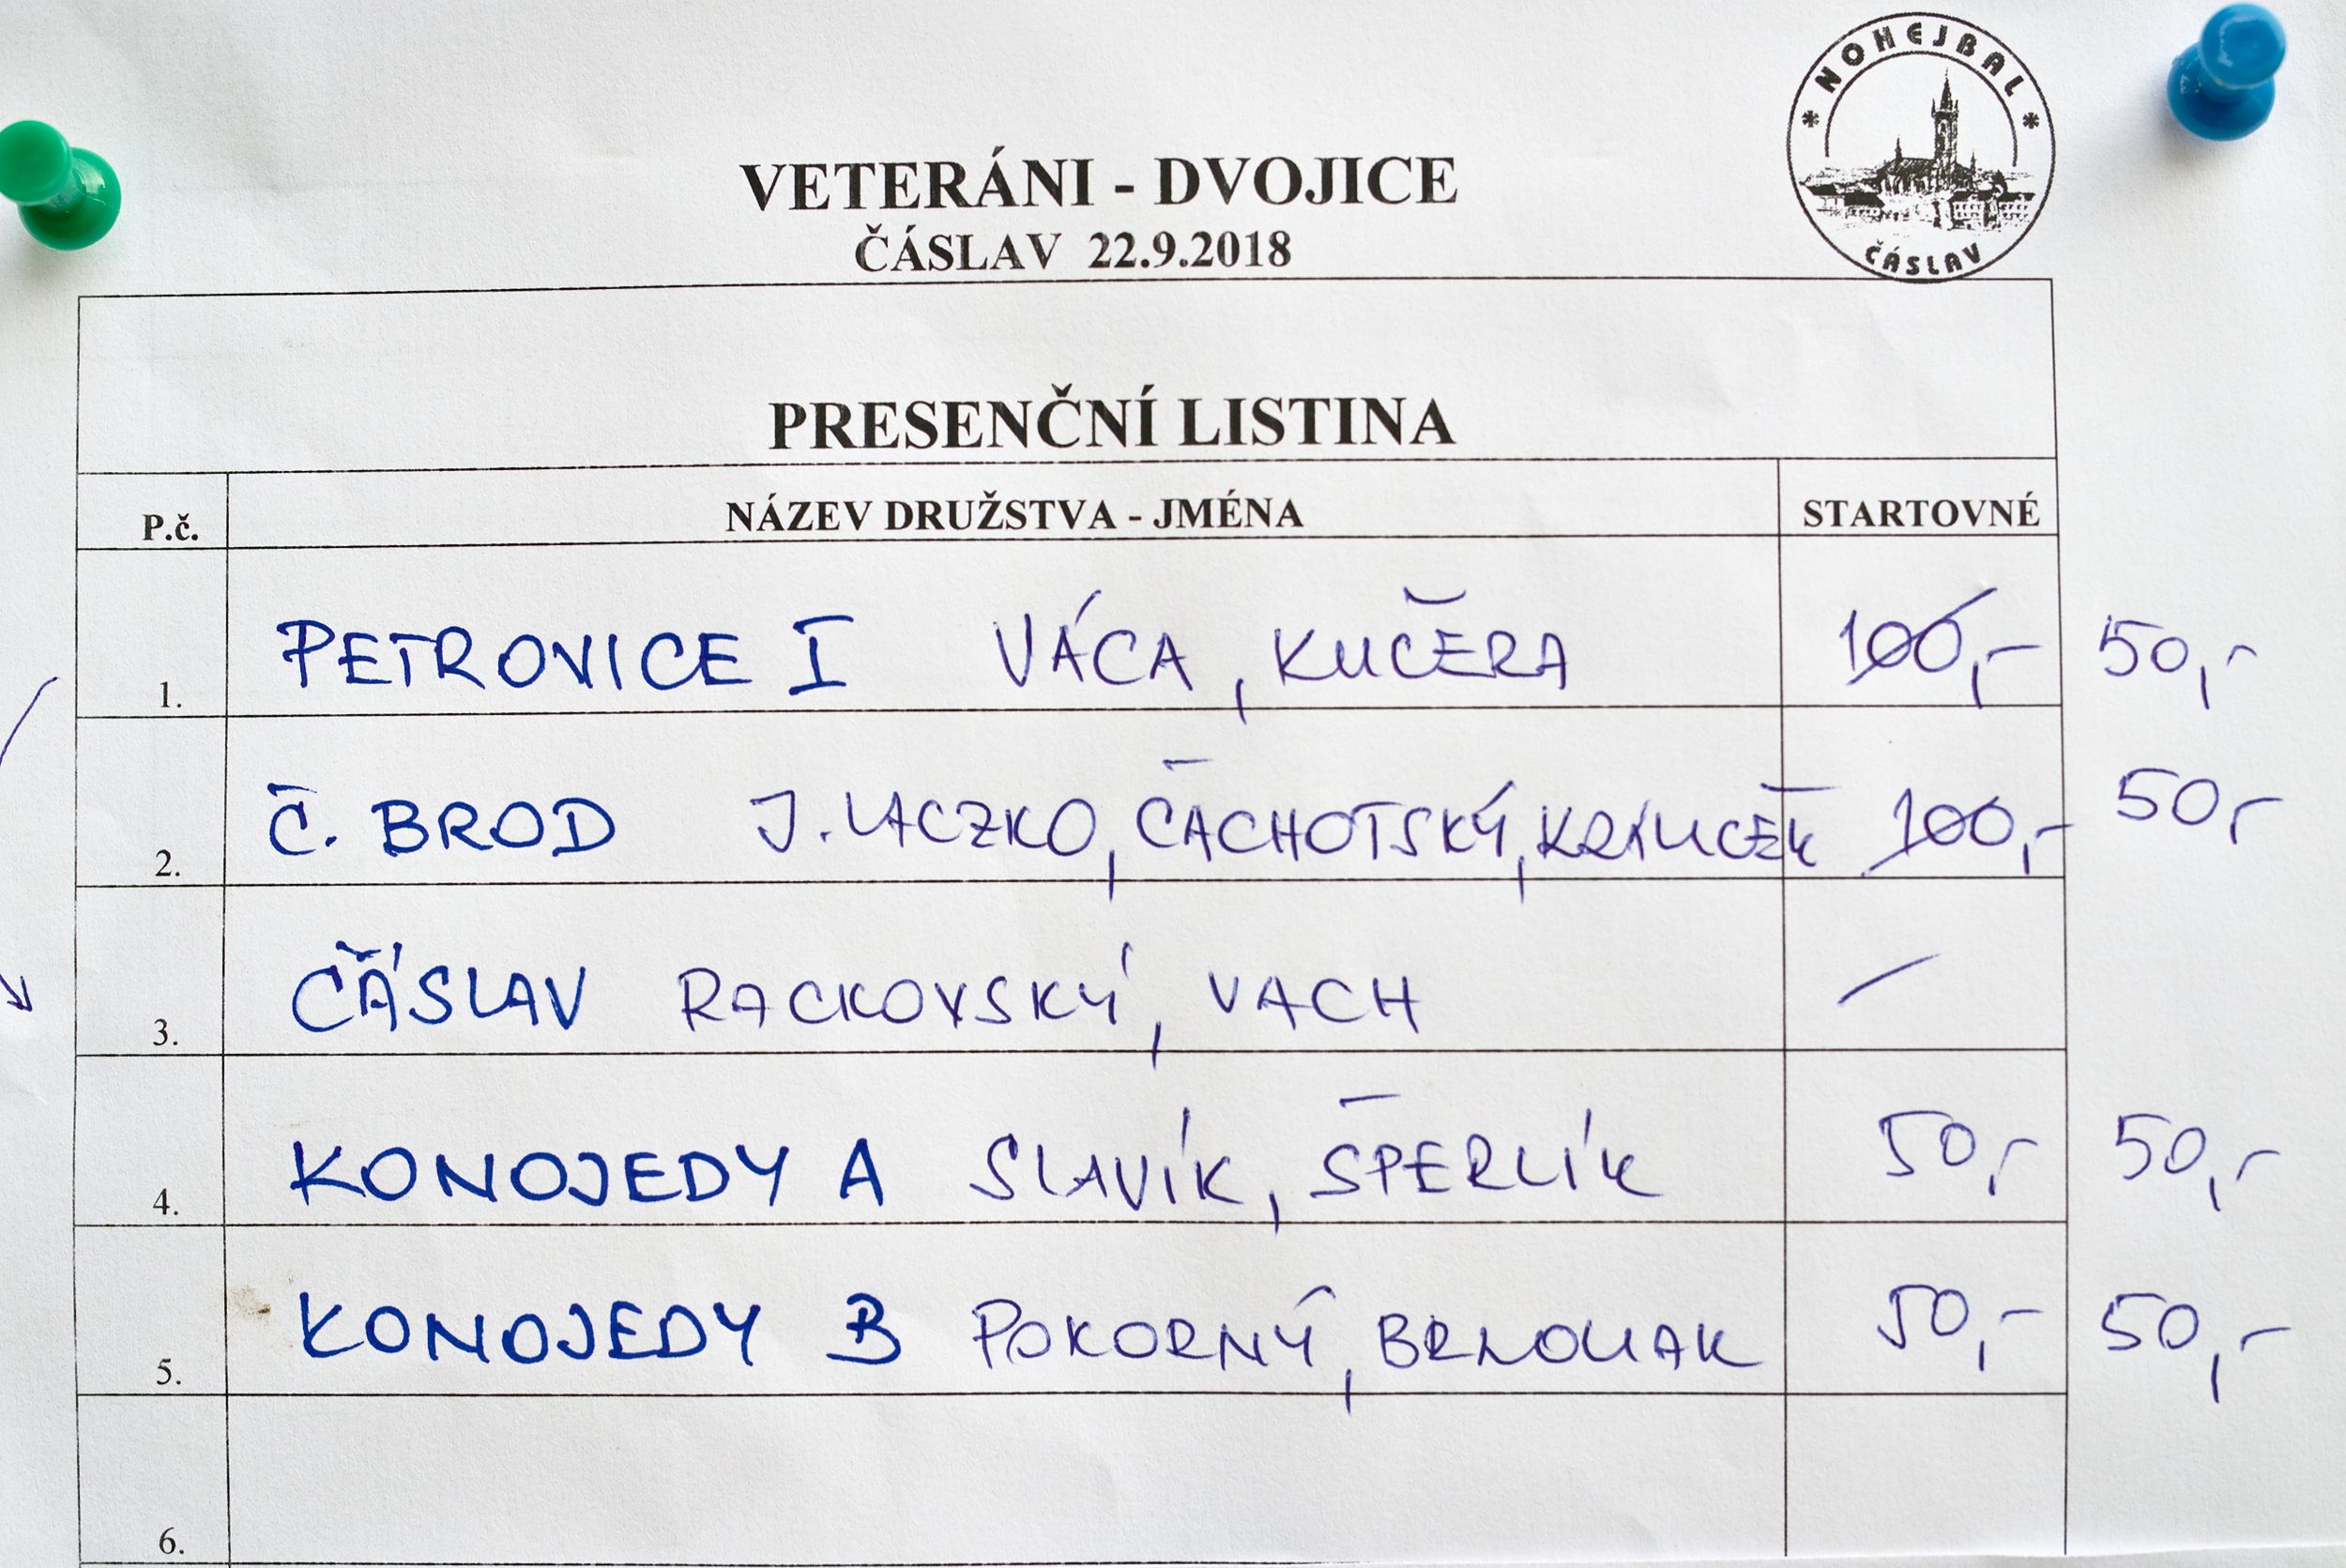 * NOHEJBAL *
ČÁSLAV
VETERÁNI - DVOJICE
ČÁSLAV 22.9.2018
PRESENČNÍ LISTINA
P.č. NÁZEV DRUŽSTVA - JMÉNA STARTOVNÉ
1. PETROVICE I VÁCA, KUČERA 100,- 50,-
2. Č. BROD J. LACZKO, ČACHOTSKÝ, 100,- 50,-
3. ČÁSLAV RACKOVSKÝ, VACH
4. KONOJEDY A SLAVÍK, ŠPERLÍK 50,- 50,-
5. KONOJEDY B POKORNÝ, 50,- 50,-
6.